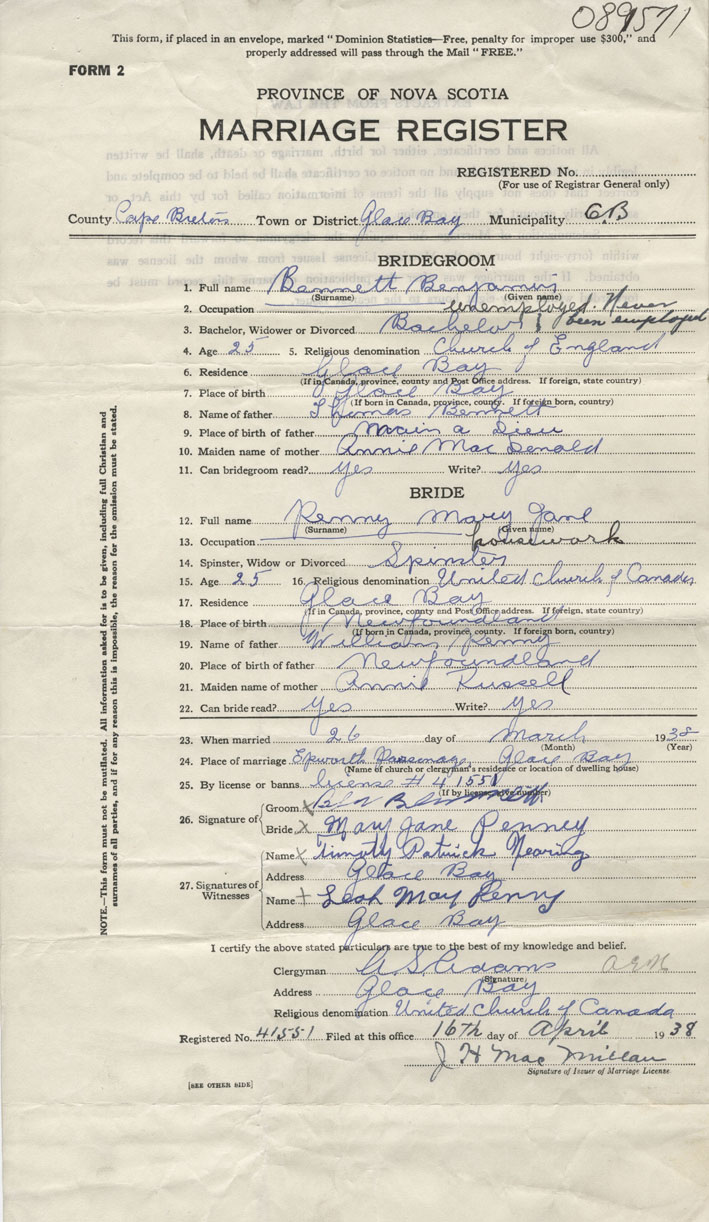 089571
This form, if placed in an envelope, marked "Dominion Statistics—Free, penalty for improper use $300," and
properly addressed will pass through the Mail "FREE."
FORM 2
PROVINCE OF NOVA SCOTIA
MARRIAGE REGISTER
REGISTERED No.
(For use of Registrar General only)
County Cape Breton Town or District Glace Bay Municipality C.B
BRIDEGROOM
1. Full name Bennett Benjamin
(Surname) (Given name)
2. Occupation unemployed. Never
been employed
3. Bachelor, Widower or Divorced Bachelor
4. Age 25 5. Religious denomination Church of England
6. Residence Glace Bay
(If in Canada, province, county and Post Office address. If foreign, state country)
7. Place of birth Glace Bay
(If born in Canada, province, county. If foreign born, country)
8. Name of father Thomas Bennett
9. Place of birth of father Main a Dieu
10. Maiden name of mother Annie Mac Donald
11. Can bridegroom read? yes Write? yes
BRIDE
12. Full name Penny Mary Jane
(Surname) (Given name)
13. Occupation housework
14. Spinster, Widow or Divorced Spinster
15. Age 25 16. Religious denomination United Church of Canada
17. Residence Glace Bay
(If in Canada, province, county and Post Office address. If foreign, state country)
18. Place of birth Newfoundland
(If born in Canada, province, county. If foreign born, country)
19. Name of father William Penny
20. Place of birth of father Newfoundland
21. Maiden name of mother Annie Russell
22. Can bride read? yes Write? yes
23. When married 26 day of March 1938
(Month) (Year)
24. Place of marriage Epworth Parsonage, Glace Bay
(Name of church or clergyman's residence or location of dwelling house)
25. By license or banns license # 41551
(If by license, give number)
26. Signature of
Groom x
Bride x Mary Jane Penney
27. Signatures of
Witnesses
Name x Timothy Patrick Nearing
Address Glace Bay
Name + Leah May Penny
Address Glace Bay
I certify the above stated particulars are true to the best of my knowledge and belief.
Clergyman A S Adams
(Signature)
Address Glace Bay
Religious denomination United Church of Canada
Registered No. 41551 Filed at this office 16th day of April 1938
J H Mac Millan
Signature of Issuer of Marriage License
[SEE OTHER SIDE]
NOTE.—This form must not be mutilated. All information asked for is to be given, including full Christian and
surnames of all parties, and if for any reason this is impossible, the reason for the omission must be stated.